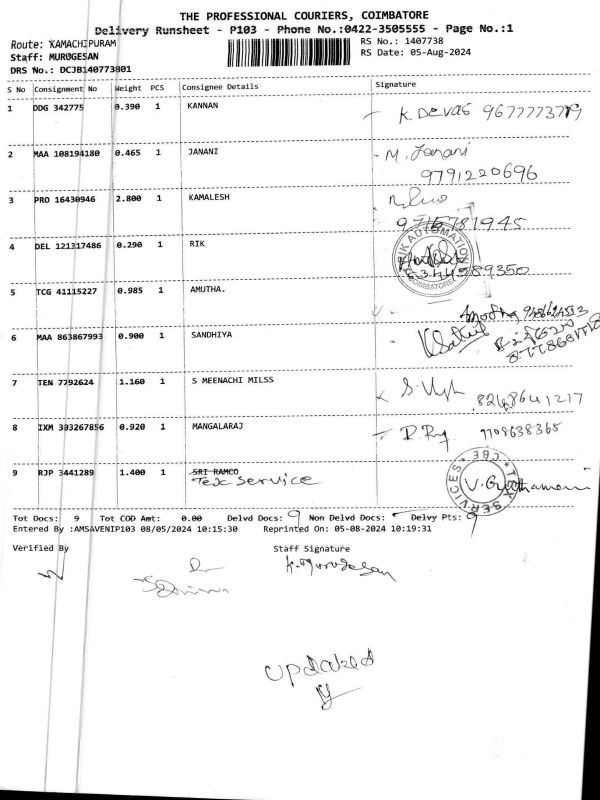 THE PROFESSIONAL COURIERS, COIMBATORE
Delivery Runsheet - P103 - Phone No.:0422-3505555 - Page No.:1
Route: KAMACHIPURAM
RS No.: 1407738
Staff: MURUGESAN
RS Date: 05-Aug-2024
DRS No.: DCJB140773801
S No Consignment No Weight PCS Consignee Details Signature
1 DDG 342775 0.390 1 KANNAN K Devas
2 MAA 108194180 0.465 1 JANANI M. Janani
9791220696
3 PRO 16430946 2.800 1 KAMALESH
9715781945
4 DEL 121317486 0.290 1 RIK
RIK AUTOMATION
COIMBATORE
5 TCG 41115227 0.985 1 AMUTHA.
Amutha
6 MAA 863867993 0.900 1 SANDHIYA
7 TEN 7792624 1.160 1 S MEENACHI MILSS
8 IXM 303267856 0.920 1 MANGALARAJ 9708638365
9 RJP 3441289 1.400 1 SRI RAMCO
Tex Service
TEX SERVICES * CBE *
Tot Docs: 9 Tot COD Amt: 0.00 Delvd Docs: 9 Non Delvd Docs: Delvy Pts: 9
Entered By :AMSAVENIP103 08/05/2024 10:15:30 Reprinted On: 05-08-2024 10:19:31
Verified By Staff Signature
K. Murugesan
Updated